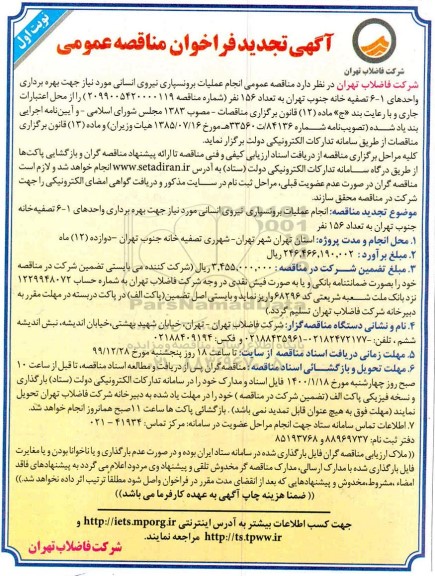 نوبت اول
آگهی تجدید فراخوان مناقصه عمومی
شرکت فاضلاب تهران
شرکت فاضلاب تهران در نظر دارد مناقصه عمومی انجام عملیات برونسپاری نیروی انسانی مورد نیاز جهت بهره برداری
واحدهای ۱-۶ تصفیه خانه جنوب تهران به تعداد ۱۵۶ نفر (شماره مناقصه ۲۰۹۹۰۰۵۴۲۰۰۰۰۱۱۹) را از محل اعتبارات
جاری و با رعایت بند «ج» ماده (۱۲) قانون برگزاری مناقصات - مصوب ۱۳۸۳ مجلس شورای اسلامی - و آیین‌نامه اجرایی
بند یاد شده (تصویب‌نامه شماره ۸۴۱۳۶/ت۳۳۵۶۰هـ مورخ ۱۳۸۵/۰۷/۱۶ هیات وزیران) و ماده (۱۳) قانون برگزاری
مناقصات از طریق سامانه تدارکات الکترونیکی دولت برگزار نماید.
کلیه مراحل برگزاری مناقصه از دریافت اسناد ارزیابی کیفی و فنی مناقصه تا ارائه پیشنهاد مناقصه گران و بازگشایی پاکت‌ها
از طریق درگاه سامانه تدارکات الکترونیکی دولت (ستاد) به آدرس www.setadiran.ir انجام خواهد شد و لازم است
مناقصه گران در صورت عدم عضویت قبلی، مراحل ثبت نام در سایت مذکور و دریافت گواهی امضای الکترونیکی را جهت
شرکت در مناقصه محقق سازند.
موضوع تجدید مناقصه: انجام عملیات برونسپاری نیروی انسانی مورد نیاز جهت بهره برداری واحدهای ۱-۶ تصفیه خانه
جنوب تهران به تعداد ۱۵۶ نفر
۱. محل انجام و مدت پروژه: استان تهران شهر تهران - شهرری تصفیه خانه جنوب تهران - دوازده (۱۲) ماه
۲. مبلغ برآورد : ۲۴۶,۴۶۶,۱۹۰,۰۰۲ ریال
۳. مبلغ تضمین شرکت در مناقصه : ۳,۴۵۵,۰۰۰,۰۰۰ ریال (شرکت کننده می بایستی تضمین شرکت در مناقصه
خود را بصورت ضمانتنامه بانکی و یا به صورت فیش نقدی در وجه شرکت فاضلاب تهران به شماره حساب ۱۲۲۹۹۴۸۰۷۲
نزد بانک ملت شعبه شریعتی کد ۶۸۲۹۶ واریز نماید و بایستی اصل تضمین (پاکت الف) در پاکت دربسته در مهلت مقرر به
دبیرخانه شرکت فاضلاب تهران تسلیم گردد.)
۴. نام و نشانی دستگاه مناقصه‌گزار: شرکت فاضلاب تهران - تهران، خیابان شهید بهشتی، خیابان اندیشه، نبش اندیشه
ششم، تلفن: ۰۲۱۸۲۴۷۲۱۷۷-۰۲۱۸۸۴۳۵۹۶۱ و فکس: ۰۲۱۸۸۴۰۹۱۹۴
۵. مهلت زمانی دریافت اسناد مناقصه از سایت: تا ساعت ۱۸ روز پنجشنبه مورخ ۹۹/۱۲/۲۸
۶. مهلت تحویل و بازگشائی اسناد مناقصه: مناقصه‌گران باید پس از دریافت و مطالعه اسناد مناقصه، تا قبل از ساعت ۱۰
صبح روز چهارشنبه مورخ ۱۴۰۰/۱/۱۸ فایل اسناد و مدارک خود را در سامانه تدارکات الکترونیکی دولت (ستاد) بارگذاری
و نسخه فیزیکی پاکت الف (تضمین شرکت در مناقصه) خود را در مهلت یاد شده به دبیرخانه شرکت فاضلاب تهران تحویل
نمایند (مهلت فوق به هیچ عنوان قابل تمدید نمی باشد). بازگشائی پاکت ها ساعت ۱۱ صبح همانروز انجام خواهد شد.
۷. اطلاعات تماس سامانه ستاد جهت انجام مراحل عضویت در سامانه: مرکز تماس: ۴۱۹۳۴ - ۰۲۱
دفتر ثبت نام: ۸۸۹۶۹۷۳۷ و ۸۵۱۹۳۷۶۸
((ملاک ارزیابی مناقصه گران فایل بارگذاری شده در سامانه ستاد ایران بوده و در صورت عدم بارگذاری و یا ناخوانا بودن و یا مغایرت
فایل بارگذاری شده با مدارک ارسالی، مدارک مناقصه گر مخدوش تلقی و پیشنهاد وی مردود اعلام می گردد به پیشنهادهای فاقد
امضاء، مشروط، مخدوش و پیشنهادهایی که بعد از انقضای مدت مقرر در فراخوان واصل شود مطلقا ترتیب اثر داده نخواهد شد.))
((ضمنا هزینه چاپ آگهی به عهده کارفرما می باشد))
جهت کسب اطلاعات بیشتر به آدرس اینترنتی http://iets.mporg.ir و
http://ts.tpww.ir مراجعه نمایند.
شرکت فاضلاب تهران